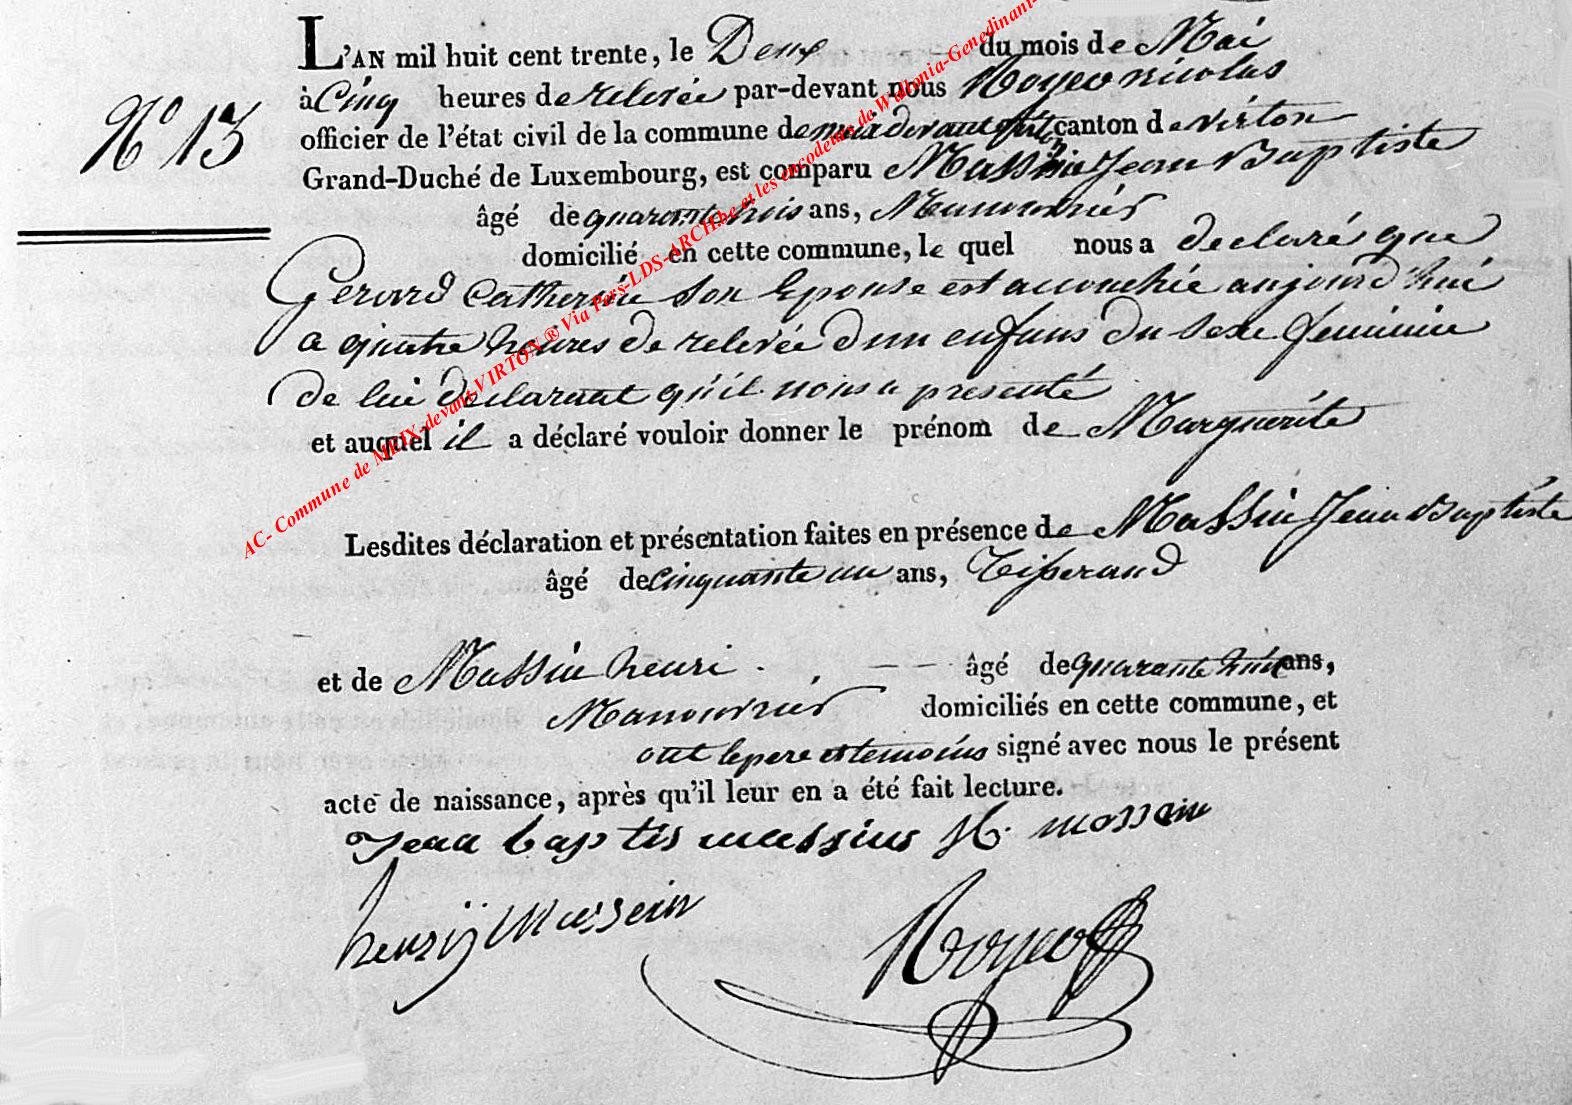 L'AN mil huit cent trente, le Deux du mois de Mai
à Cinq heures de relevée par-devant nous Noyer nicolas
N° 13
officier de l'état civil de la commune de meix devant virton canton de virton
Grand-Duché de Luxembourg, est comparu Massin Jean Baptiste
âgé de quarante trois ans, Manouvrier
domicilié en cette commune, le quel nous a declaré que
Gerard Catherine son Epouse est accouchée aujourd'hui
a quatre heures de relevée d'un enfans du sexe feminin
de lui declarant qu'il nous a presenté
et auquel il a déclaré vouloir donner le prénom de Marguerite
Lesdites déclaration et présentation faites en présence de Massin Jean Baptiste
âgé de cinquante un ans, Tisserand
et de Massin henri âgé de quarante huit ans,
Manouvrier domiciliés en cette commune, et
ont le pere et temoins signé avec nous le présent
acte de naissance, après qu'il leur en a été fait lecture.
Jean baptis massius massein
henrij Massein
AC- Commune de MEIX-devant-VIRTON ® Via Pers-LDS-ARCH.be et les encodeurs de Wallonia-Genedinant-